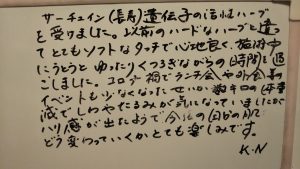 サーチュイン(長寿)遺伝子の活性ハーブ
を受けました。以前のハードなハーブと違っ
てとてもソフトなタッチで心地良く、施術中
にうとうと ゆったりくつろぎながらの時間を過
ごしました。コロナ禍でランチ会や外食等の
イベントも少なくなったせいか数キロの体重
減でしわやたるみが気になっていましたが
ハリ感が出たようで今後の自分の肌
どう変わっていくかとても楽しみです。
K.N